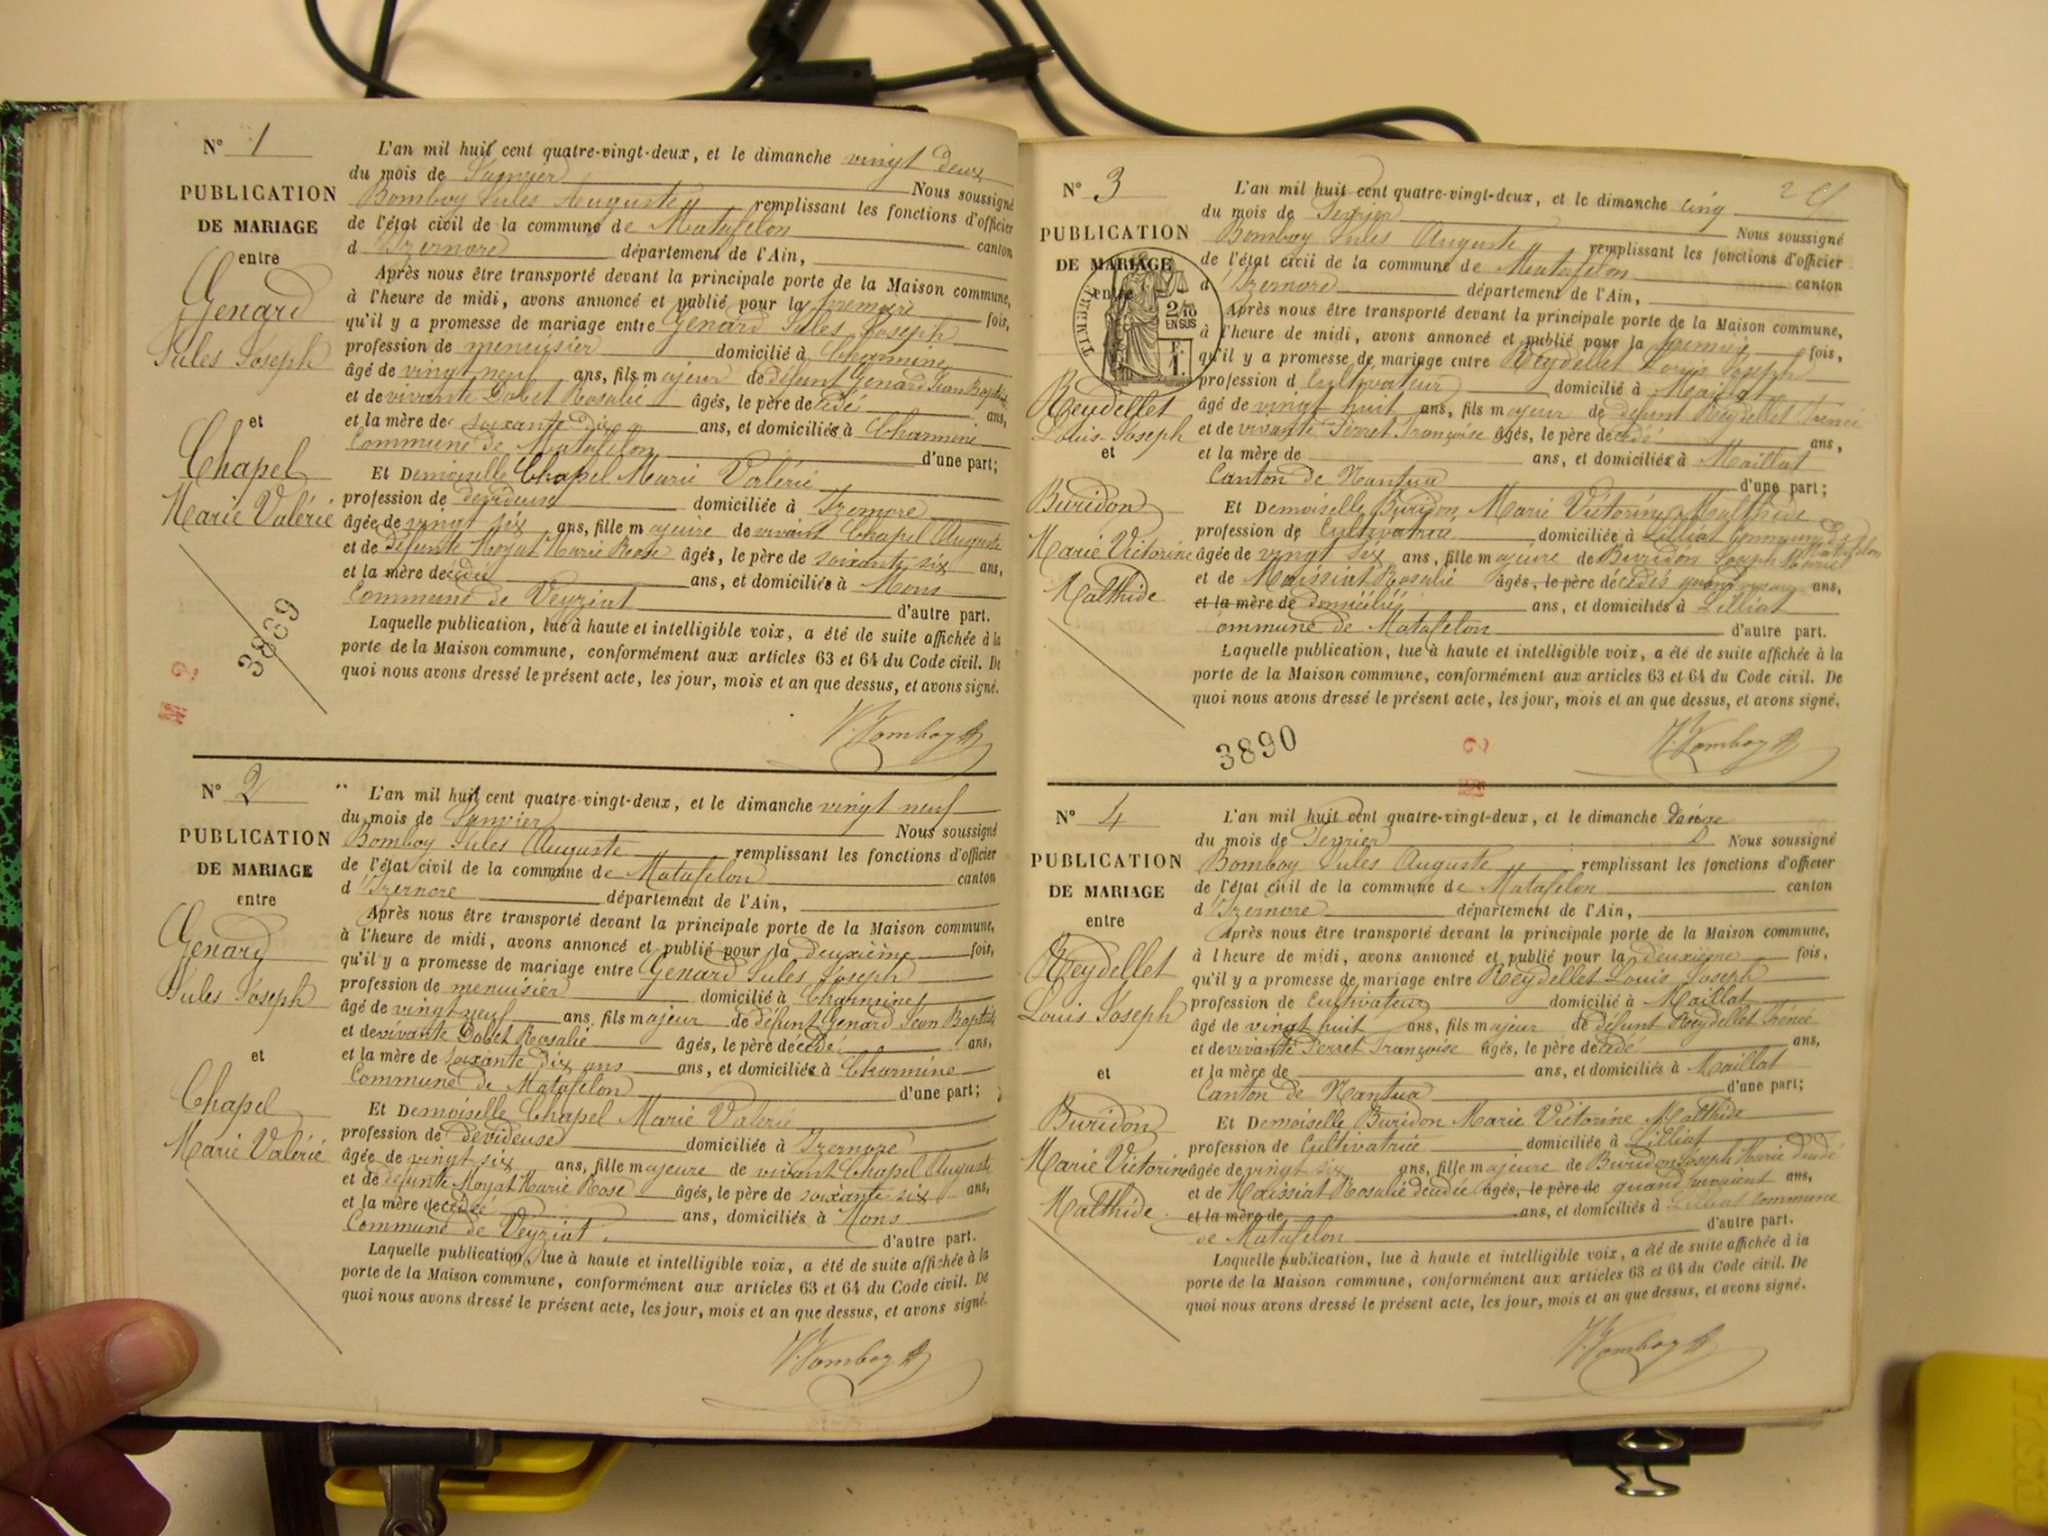 Nº 1
PUBLICATION
DE MARIAGE
entre
Genard
Jules Joseph
et
Chapel
Marie Valérie
3889
L'an mil huit cent quatre-vingt-deux, et le dimanche vingt deux
du mois de Janvier Nous soussigné
Bomboy Jules Auguste remplissant les fonctions d'officier
de l'état civil de la commune de Matafelon canton
d'Izernore département de l'Ain,
Après nous être transporté devant la principale porte de la Maison commune,
à l'heure de midi, avons annoncé et publié pour la première fois,
qu'il y a promesse de mariage entre Genard Jules Joseph
profession de menuisier domicilié à Charmine
âgé de vingt neuf ans, fils majeur de défunt Genard Jean Baptiste
et de vivante Dobet Rosalie âgés, le père décédé ans,
et la mère de soixante dix ans, et domiciliés à Charmine
Commune de Matafelon d'une part;
Et Demoiselle Chapel Marie Valérie
profession de dévideuse domiciliée à Izernore
âgée de vingt six ans, fille majeure de vivant Chapel Auguste
et de défunte Moyat Marie Rose âgés, le père de soixante six ans,
et la mère décédée ans, et domiciliés à Mons
Commune de Veyziat d'autre part.
Laquelle publication, lue à haute et intelligible voix, a été de suite affichée à la
porte de la Maison commune, conformément aux articles 63 et 64 du Code civil. De
quoi nous avons dressé le présent acte, les jour, mois et an que dessus, et avons signé.
J. Bomboy
Nº 2
PUBLICATION
DE MARIAGE
entre
Genard
Jules Joseph
et
Chapel
Marie Valérie
L'an mil huit cent quatre-vingt-deux, et le dimanche vingt neuf
du mois de Janvier Nous soussigné
Bomboy Jules Auguste remplissant les fonctions d'officier
de l'état civil de la commune de Matafelon canton
d'Izernore département de l'Ain,
Après nous être transporté devant la principale porte de la Maison commune,
à l'heure de midi, avons annoncé et publié pour la deuxième fois,
qu'il y a promesse de mariage entre Genard Jules Joseph
profession de menuisier domicilié à Charmine
âgé de vingt neuf ans, fils majeur de défunt Genard Jean Baptiste
et de vivante Dobet Rosalie âgés, le père décédé ans,
et la mère de soixante dix ans ans, et domiciliés à Charmine
Commune de Matafelon d'une part;
Et Demoiselle Chapel Marie Valérie
profession de dévideuse domiciliée à Izernore
âgée de vingt six ans, fille majeure de vivant Chapel Auguste
et de défunte Moyat Marie Rose âgés, le père de soixante six ans,
et la mère décédée ans, domiciliés à Mons
Commune de Veyziat d'autre part.
Laquelle publication, lue à haute et intelligible voix, a été de suite affichée à la
porte de la Maison commune, conformément aux articles 63 et 64 du Code civil. De
quoi nous avons dressé le présent acte, les jour, mois et an que dessus, et avons signé.
J. Bomboy
Nº 3
PUBLICATION
DE MARIAGE
entre
TIMBRE
2/10
EN SUS
F.
1.
Reydellet
Louis Joseph
et
Buridon
Marie Victorine
Malthide
L'an mil huit cent quatre-vingt-deux, et le dimanche cinq
du mois de Février Nous soussigné
Bomboy Jules Auguste remplissant les fonctions d'officier
de l'état civil de la commune de Matafelon canton
d'Izernore département de l'Ain,
Après nous être transporté devant la principale porte de la Maison commune,
à l'heure de midi, avons annoncé et publié pour la première fois,
qu'il y a promesse de mariage entre Reydellet Louis Joseph
profession d Cultivateur domicilié à Maillat
âgé de vingt huit ans, fils majeur de défunt Reydellet Irénée
et de vivante Perret Françoise âgés, le père décédé ans,
et la mère de ans, et domiciliés à Maillat
Canton de Nantua d'une part;
Et Demoiselle Buridon Marie Victorine Malthide
profession de Cultivatrice domiciliée à Lilliat Commune de Matafelon
âgée de vingt six ans, fille majeure de Buridon Joseph Marie
et de Maissiat Rosalie âgés, le père décédés quand vivaient ans,
et la mère de domiciliés ans, et domiciliés à Lilliat
Commune de Matafelon d'autre part.
Laquelle publication, lue à haute et intelligible voix, a été de suite affichée à la
porte de la Maison commune, conformément aux articles 63 et 64 du Code civil. De
quoi nous avons dressé le présent acte, les jour, mois et an que dessus, et avons signé.
3890
J. Bomboy
Nº 4
PUBLICATION
DE MARIAGE
entre
Reydellet
Louis Joseph
et
Buridon
Marie Victorine
Malthide
L'an mil huit cent quatre-vingt-deux, et le dimanche
du mois de Février Nous soussigné
Bomboy Jules Auguste remplissant les fonctions d'officier
de l'état civil de la commune de Matafelon canton
d'Izernore département de l'Ain,
Après nous être transporté devant la principale porte de la Maison commune,
à l'heure de midi, avons annoncé et publié pour la deuxième fois,
qu'il y a promesse de mariage entre Reydellet Louis Joseph
profession de Cultivateur domicilié à Maillat
âgé de vingt huit ans, fils majeur de défunt Reydellet Irénée
et de vivante Perret Françoise âgés, le père décédé ans,
et la mère de ans, et domiciliés à Maillat
Canton de Nantua d'une part;
Et Demoiselle Buridon Marie Victorine Malthide
profession de Cultivatrice domiciliée à Lilliat
âgée de vingt six ans, fille majeure de Buridon Joseph Marie décédé
et de Maissiat Rosalie décédée âgés, le père de quand vivaient ans,
et la mère de ans, et domiciliés à Lilliat Commune
de Matafelon d'autre part.
Laquelle publication, lue à haute et intelligible voix, a été de suite affichée à la
porte de la Maison commune, conformément aux articles 63 et 64 du Code civil. De
quoi nous avons dressé le présent acte, les jour, mois et an que dessus, et avons signé.
J. Bomboy